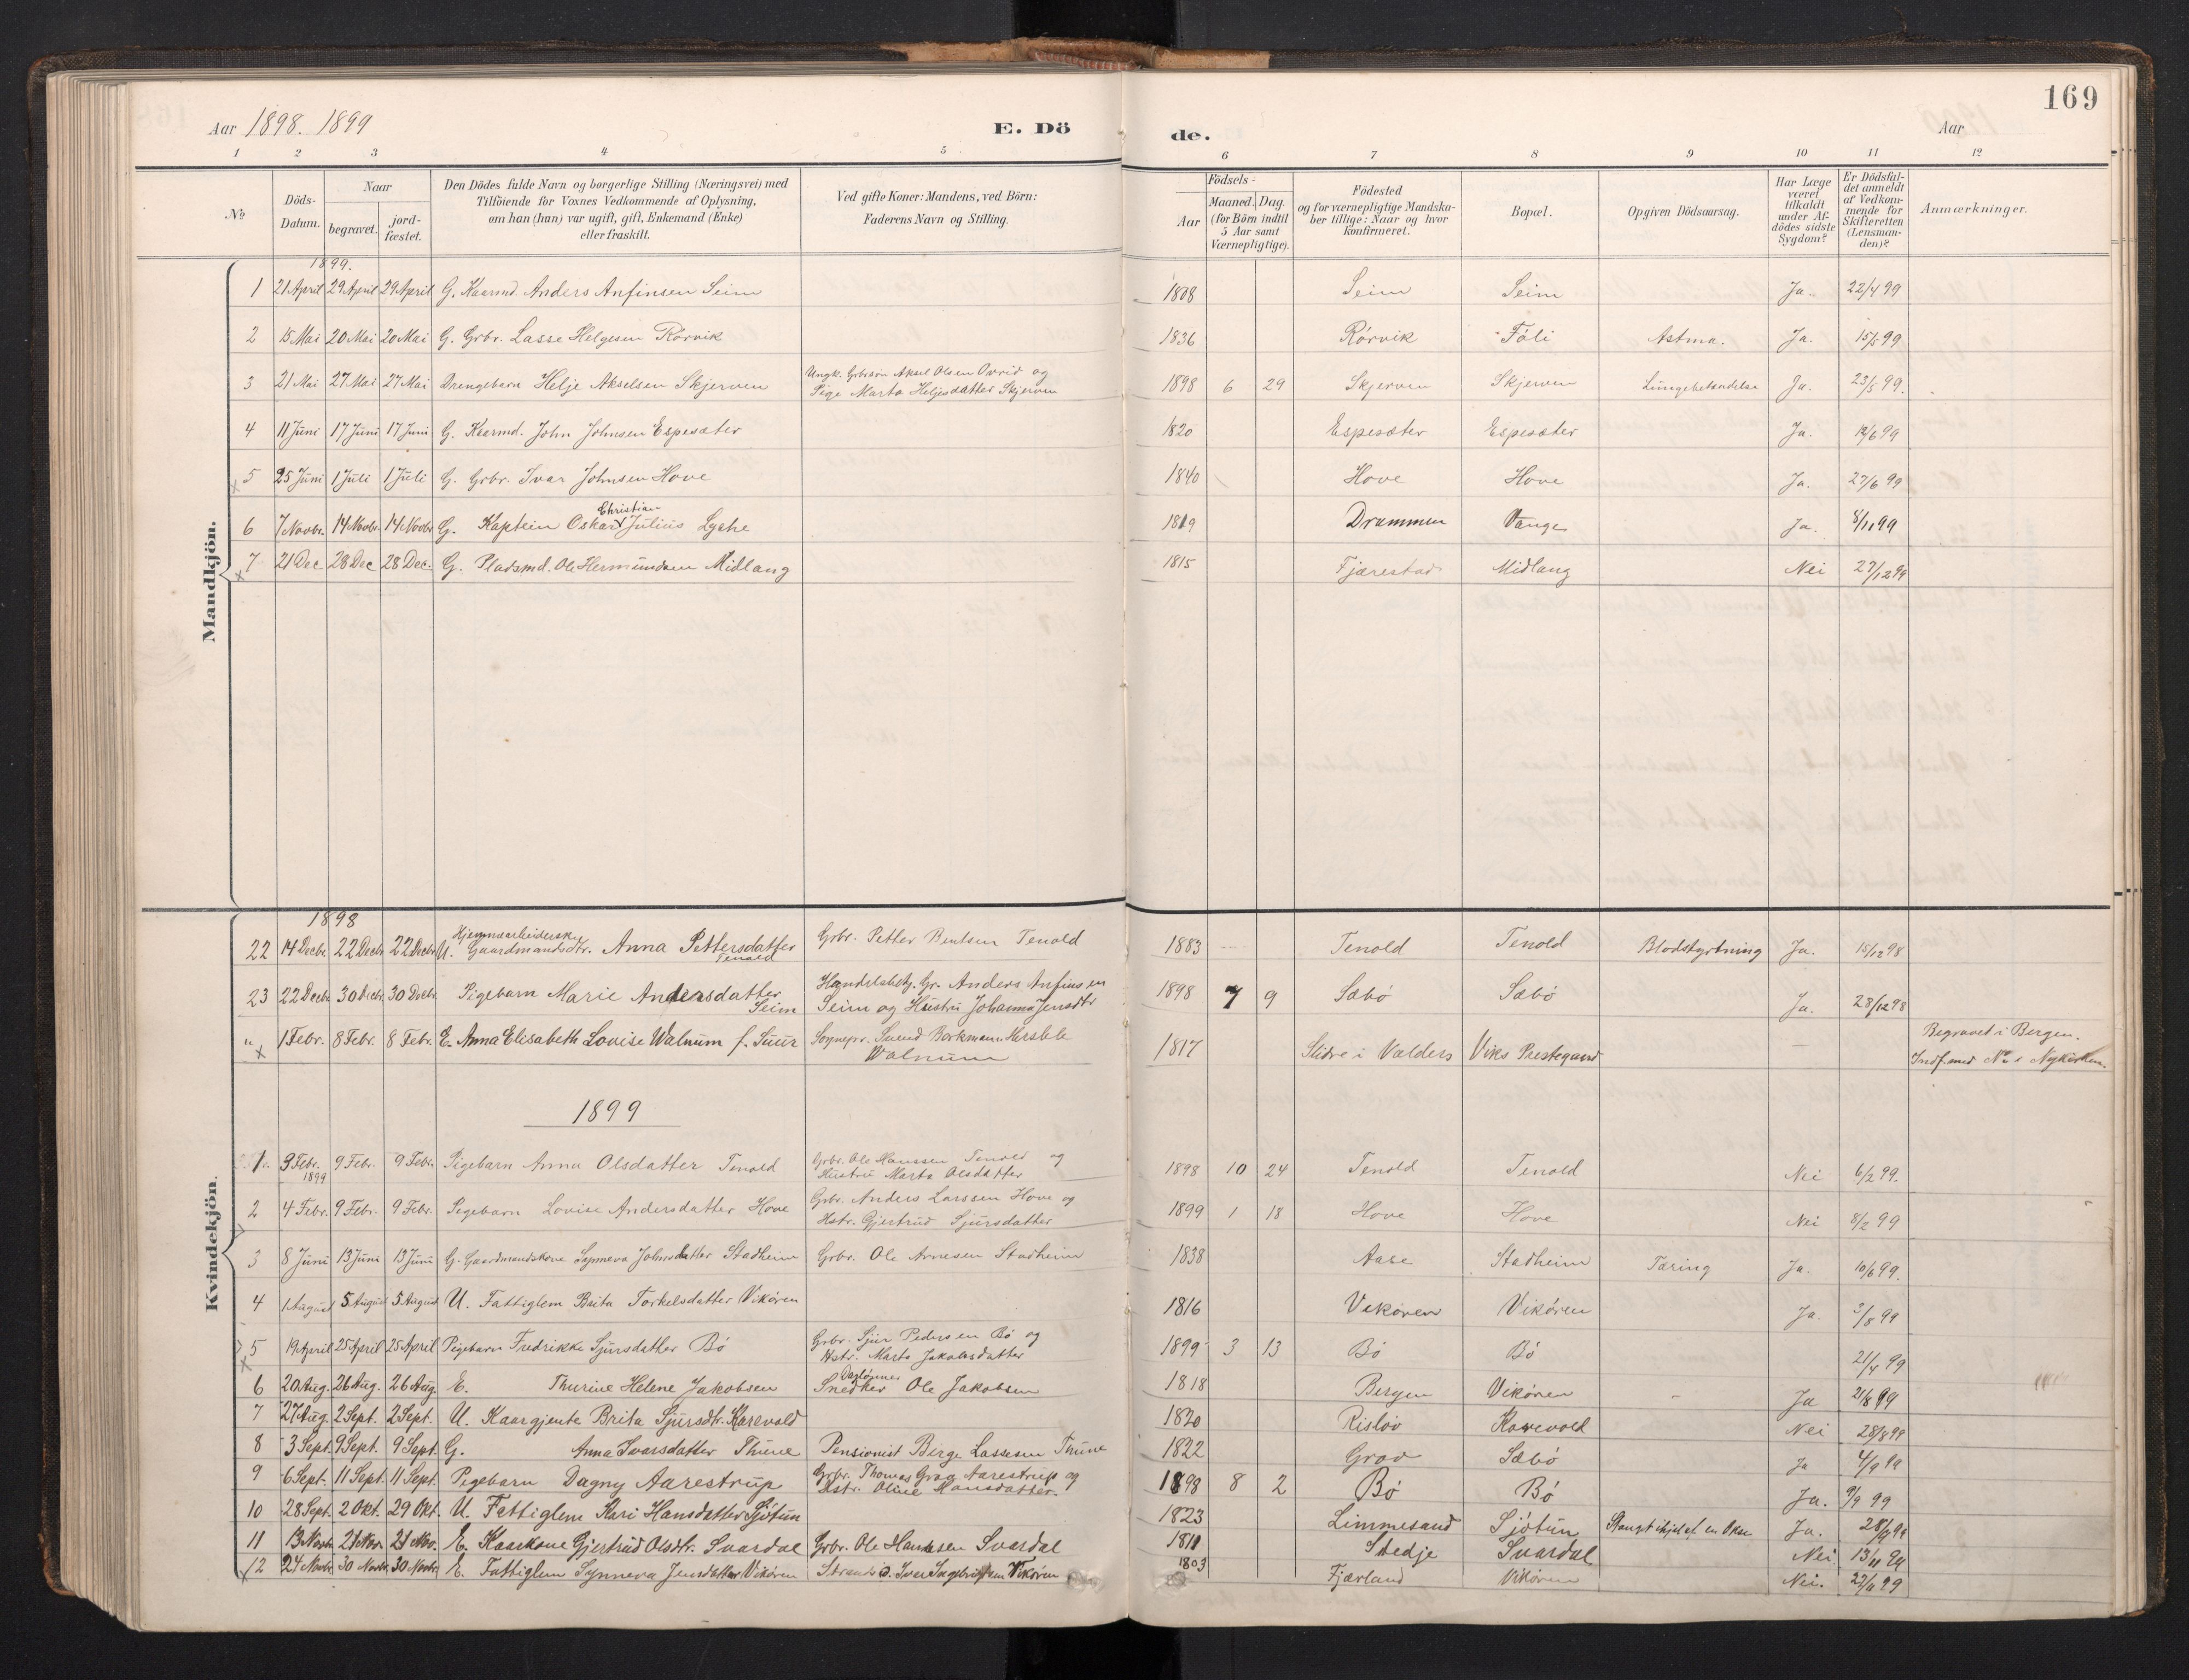 169
Aar 1898. 1899 E. Dö de. Aar
1 2 3 4 5 6 7 8 9 10 11 12
№ Döds-Datum. Naar begravet. jordfæstet. Den Dödes fulde Navn og borgerlige Stilling (Næringsvei) med Tilföiende for Voxnes Vedkommende af Oplysning, om han (hun) var ugift, gift, Enkemand (Enke) eller fraskilt. Ved gifte Koner: Mandens, ved Börn: Faderens Navn og Stilling. Födsels- Aar Maaned. Dag. (for Börn indtil 5 Aar samt Værnepligtige). Födested og for værnepligtige Mandskaber tillige: Naar og hvor konfirmeret. Bopæl. Opgiven Dödsaarsag. Har Læge været tilkaldt under Afdödes sidste Sygdom? Er Dödsfaldet anmeldt af Vedkommende for Skifteretten (Lensmanden)? Anmærkninger.
Mandkjön.
1899.
1 21 April 29 April 29 April G. Kaarmd. Anders Anfinsen Seim 1808 Seim Seim Ja. 22/4 99
2 15 Mai 20 Mai 20 Mai G. Grbr. Lasse Helgesen Rörvik 1836 Rörvik Föli Astma. Ja. 15/5 99
3 21 Mai 27 Mai 27 Mai Drengebarn Helje Akselsen Skjerven Ungk. Grbrsön Aksel Olsen Ovrid og 1898 6 29 Skjerven Skjerven Lungebetændelse Ja. 23/5 99.
Pige Marta Heljesdatter Skjerven
4 11 Juni 17 Juni 17 Juni G. Kaarmd. John Johnsen Espesæter 1820 Espesæter Espesæter Ja. 12/6 99
5 25 Juni 1 Juli 1 Juli G. Grbr. Ivar Johnsen Hove 1840 Hove Hove Ja. 27/6 99
Christian
6 7 Novbr. 14 Novbr. 14 Novbr. G. Kaptein Oskar Julius Lyche 1819 Drammen Vange Ja. 8/11 99
7 21 Dec 28 Dec 28 Dec. G. Pladsmd. Ole Hermundsen Midlang 1815 Fjærestad Midlang Nei 27/12 99
Kvindekjön.
1898
Hjemmearbeiderske
22 14 Decbr 22 Decbr 22 Decbr U. Gaardmandsdtr. Anna Pettersdatter Grbr. Petter Bentsen Tenold 1883 Tenold Tenold Blodstyrtning Ja. 15/12 98
Tenold
23 22 Decbr 30 Decbr 30 Decbr. Pigebarn Marie Andersdatter Handelsbetj. Gr. Anders Anfinsen 1898 7 9 Sæbö Sæbö Ja. 28/12 98
Seim Seim og Hustru Johanna Jensdtr
" 1 Febr. 8 Febr. 8 Febr. E. Anna Elisabeth Lovise Walnum f. Suur Sognepr. Svend Borkmann Hersleb 1817 Slidre i Valders Viks Prestegaard — Begravet i Bergen.
Walnum Indf. med No 1 Nykirken.
1899
1. 3 Febr. 1899 9 Febr. 9 Febr. Pigebarn Anna Olsdatter Tenold Grbr. Ole Hanssen Tenold og 1898 10 24 Tenold Tenold Nei 6/2 99.
Hustru Marta Olsdatter
2 4 Febr. 9 Febr. 9 Febr. Pigebarn Lovise Andersdatter Hove Grbr. Anders Larssen Hove og 1899 1 18 Hove Hove Nei 8/2 99
Hstr. Gjertrud Sjursdatter
3 8 Juni 13 Juni 13 Juni G. Gaardmandskone Synneva Johnsdatter Stadheim Grbr. Ole Arnesen Stadheim 1838 Aase Stadheim Tæring Ja. 10/6 99.
4 1 August 5 August 5 August U. Fattiglem Brita Torkelsdatter Vikören 1816 Vikören Vikören Ja. 3/8 99
5 19 April 25 April 25 April Pigebarn Fredrikke Sjursdatter Bö Grbr. Sjur Pedersen Bö og 1899 3 13 Bö Bö 21/4 99
Hstr. Marta Jakobsdatter
6 20 Aug. 26 Aug. 26 Aug. E. Thurine Helene Jakobsen Snedker Ole Jakobsen 1818 Bergen Vikören Ja 21/8 99
7 27 Aug. 2 Sept. 2 Sept. U. Kaargjente Brita Sjursdtr. Karevold 1820 Risløv Karevold Nei 28/8 99
8 3 Sept. 9 Sept. 9 Sept. G. Anna Ivarsdatter Thune Pensionist Berge Lassesen Thune 1822 Grov Sæbö Ja 4/9 99
9 6 Sept. 11 Sept. 11 Sept. Pigebarn Dagny Aarestrup Grbr. Thomas Grag Aarestrup og 1898 8 2 Bö Bö Ja. 9/9 99
Hstr. Oline Hansdatter.
10 28 Sept. 2 Okt. 29 Okt. U. Fattiglem Kari Hansdatter Sjötun 1823 Limmesand Sjötun Stanget ihjel af en Okse Ja. 28/9 99
11 13 Novbr. 21 Nov. 21 Nov. E. Kaarkone Gjertrud Olsdtr. Svardal Grbr. Ole Hansen Svardal 1811 Stedje Svardal Nei 13/11 99
12 24 Novbr. 30 Novbr. 30 Novbr. E. Fattiglem Synneva Jensdatter Vikören Iver Ingebrigtsen Vikören 1803 Fjærland Vikören Nei. 27/11 99